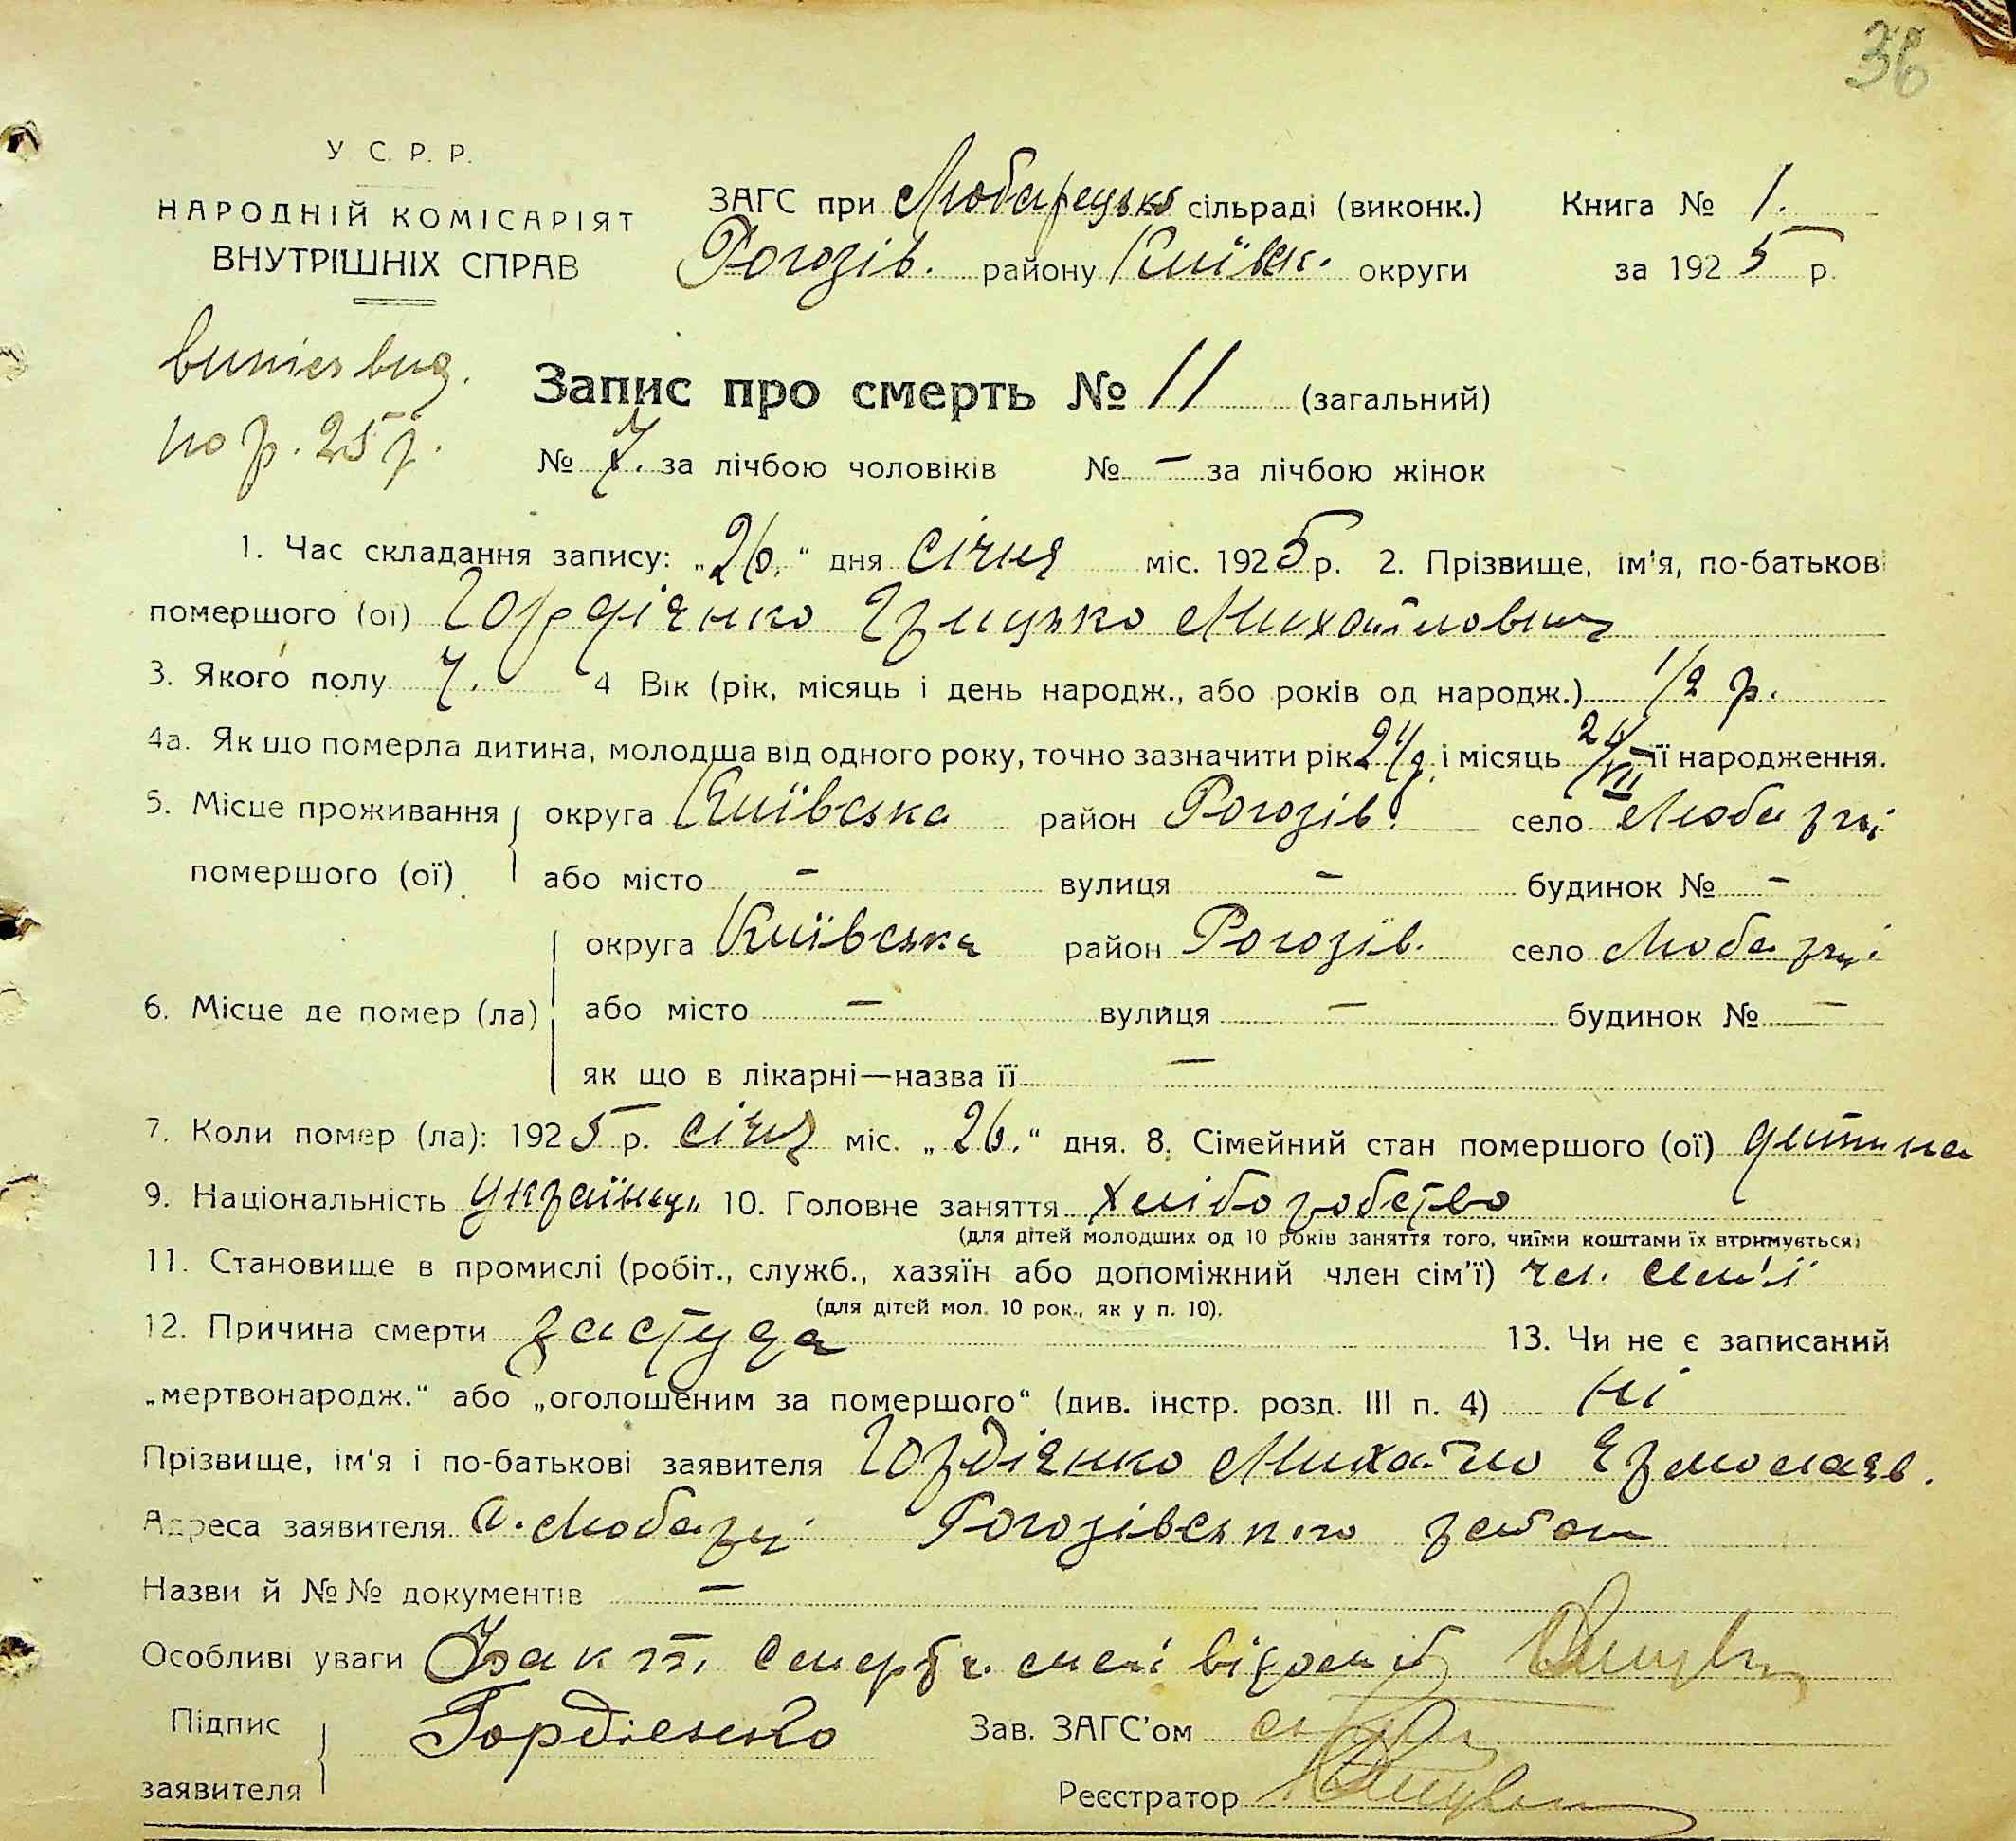 36
У С. Р. Р.
НАРОДНІЙ КОМІСАРІЯТ
ВНУТРІШНІХ СПРАВ
ЗАГС при Любарецькі сільраді (виконк.) Книга № 1.
Рогозів. району Київськ. округи за 1925 р.
Запис про смерть № 11 (загальний)
по р. 25 р.
№ 7. за лічбою чоловіків № – за лічбою жінок
1. Час складання запису: „26.“ дня січня міс. 1925 р. 2. Прізвище, ім'я, по-батькові
помершого (ої) Гордієнко Грицько Михайлович
3. Якого полу ч. 4 Вік (рік, місяць і день народж., або років од народж.) 1/2 р.
4а. Як що померла дитина, молодша від одного року, точно зазначити рік 24 р. і місяць 24/VII її народження.
5. Місце проживання округа Київська район Рогозів. село Любарці
помершого (ої) або місто – вулиця – будинок № –
округа Київська район Рогозів. село Любарці
6. Місце де помер (ла) або місто – вулиця – будинок № –
як що в лікарні—назва її –
7. Коли помер (ла): 1925 р. січня міс. „26.“ дня. 8. Сімейний стан помершого (ої) дитина
9. Національність Українець 10. Головне заняття хліборобство
(для дітей молодших од 10 років заняття того, чиїми коштами їх втримується)
11. Становище в промислі (робіт., служб., хазяїн або допоміжний член сім'ї) чл. сем'ї
(для дітей мол. 10 рок., як у п. 10).
12. Причина смерти застуда 13. Чи не є записаний
„мертвонародж.“ або „оголошеним за помершого“ (див. інстр. розд. III п. 4) ні
Прізвище, ім'я і по-батькові заявителя Гордієнко Михайло Єрмолаєв.
Адреса заявителя с. Любарці Рогозівського район
Назви й №№ документів –
Особливі уваги Факт смерти мені відомий
Підпис Гордієнко Зав. ЗАГС'ом
заявителя Реєстратор